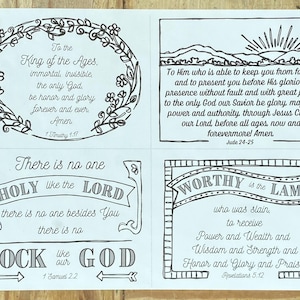 To the
King of the Ages,
immortal, invisible,
the only God,
be honor and glory
forever and ever.
Amen.
1 Timothy 1:17
To Him who is able to keep you from fa
and to present you before His glorio
presence without fault and with great j
to the only God our Savior be glory, ma
power and authority, through Jesus C
our Lord, before all ages, now an
forevermore! Amen.
Jude 24-25
There is no one
HOLY like the LORD
there is no one besides You
there is no
OCK like our GOD
1 Samuel 2:2
WORTHY is the LAM
who was slain,
to receive
Power and Wealth and
Wisdom and Strength and
Honor and Glory and Prais
Revelations 5:12